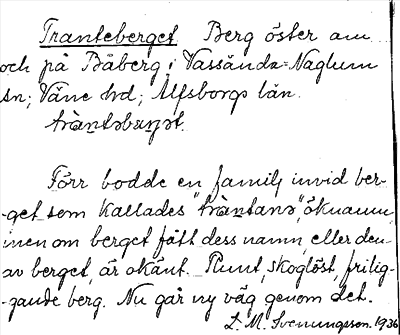 Tranteberget Berg öster om
och på Båberg i Vassända-Naglum
sn; Väne hd; Älfsborgs län.
tràntəbæɲət.
Förr bodde en familj invid ber-
-get som kallades "tràntanə", öknamn,
men om berget fått dess namn, eller den
av berget, är okänt. Runt, skoglöst, frilig-
-gande berg. Nu går ny väg genom det.
L. M. Svenungsson. 1936